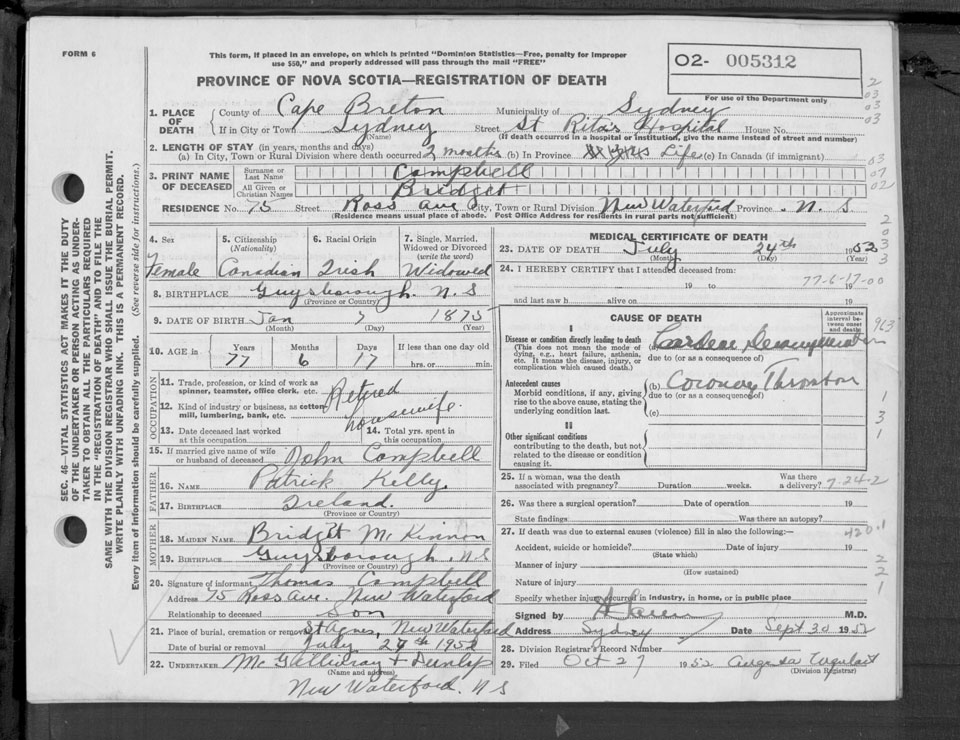 FORM 6
This form, if placed in an envelope, on which is printed "Dominion Statistics—Free, penalty for improper
use $50," and properly addressed will pass through the mail "FREE"
PROVINCE OF NOVA SCOTIA—REGISTRATION OF DEATH
O2- 005312
For use of the Department only
1. PLACE OF DEATH { County of Cape Breton Municipality of Sydney
If in City or Town Sydney Street St Rita's Hospital House No.
(Name) (If death occurred in a hospital or institution, give the name instead of street and number)
2. LENGTH OF STAY (in years, months and days)
(a) In City, Town or Rural Division where death occurred 2 months (b) In Province Life (c) In Canada (if immigrant)
3. PRINT NAME OF DECEASED { Surname or Last Name Campbell
All Given or Christian Names Bridget
RESIDENCE No. 75 Street Ross Ave City, Town or Rural Division New Waterford Province N. S
(Residence means usual place of abode. Post Office Address for residents in rural parts not sufficient)
4. Sex 5. Citizenship (Nationality) 6. Racial Origin 7. Single, Married, Widowed or Divorced (write the word)
Female Canadian Irish Widowed
8. BIRTHPLACE Guysborough. N. S
(Province or Country)
9. DATE OF BIRTH Jan 7 1875
(Month) (Day) (Year)
10. AGE in { Years Months Days If less than one day old
77 6 17 hrs. or min.
OCCUPATION
11. Trade, profession, or kind of work as spinner, teamster, office clerk, etc. Retired
12. Kind of industry or business, as cotten mill, lumbering, bank, etc. housewife.
13. Date deceased last worked at this occupation 14. Total yrs. spent in this occupation
15. If married give name of wife or husband of deceased John Campbell
FATHER
16. NAME Patrick Kelly
17. BIRTHPLACE Ireland.
(Province or Country)
MOTHER
18. MAIDEN NAME Bridget McKinnon
19. BIRTHPLACE Guysborough. N S
(Province or Country)
20. Signature of informant Thomas Campbell
Address 75 Ross ave. New Waterford
Relationship to deceased Son
21. Place of burial, cremation or removal St Agnes, New Waterford
Date of burial or removal July 27th 1952
22. UNDERTAKER McGillivray + Dunlop
(Name and address)
New Waterford. N S
MEDICAL CERTIFICATE OF DEATH
23. DATE OF DEATH July 24th 1952
(Month) (Day) (Year)
24. I HEREBY CERTIFY that I attended deceased from:
19 to 19
77-6-17-00
and last saw h alive on 19
CAUSE OF DEATH
Approximate interval between onset and death
I
Disease or condition directly leading to death
(This does not mean the mode of dying, e.g., heart failure, asthenia, etc. It means the disease, injury, or complication which caused death.)
(a)
due to (or as a consequence of)
Antecedent causes
Morbid conditions, if any, giving rise to the above cause, stating the underlying condition last.
(b) Coronary
due to (or as a consequence of)
(c)
II
Other significant conditions
contributing to the death, but not related to the disease or condition causing it.
25. If a woman, was the death associated with pregnancy? Duration weeks. Was there a delivery?
7-24-2
26. Was there a surgical operation? Date of operation 19
State findings Was there an autopsy?
27. If death was due to external causes (violence) fill in also the following:—
420.1
Accident, suicide or homicide? Date of injury 19
(State which)
Manner of injury
(How sustained)
Nature of injury
Specify whether injury occurred in industry, in home, or in public place
Signed by M.D.
Address Sydney Date Sept 30 1952
28. Division Registrar's Record Number
29. Filed Oct 27 1952
(Division Registrar)
SEC. 46—VITAL STATISTICS ACT MAKES IT THE DUTY
OF THE UNDERTAKER OR PERSON ACTING AS UNDER-
TAKER TO OBTAIN ALL THE PARTICULARS REQUIRED
IN THE "REGISTRATION OF DEATH" AND TO FILE THE
SAME WITH THE DIVISION REGISTRAR WHO SHALL ISSUE THE BURIAL PERMIT.
WRITE PLAINLY WITH UNFADING INK. THIS IS A PERMANENT RECORD.
Every item of information should be carefully supplied. (See reverse side for instructions.)